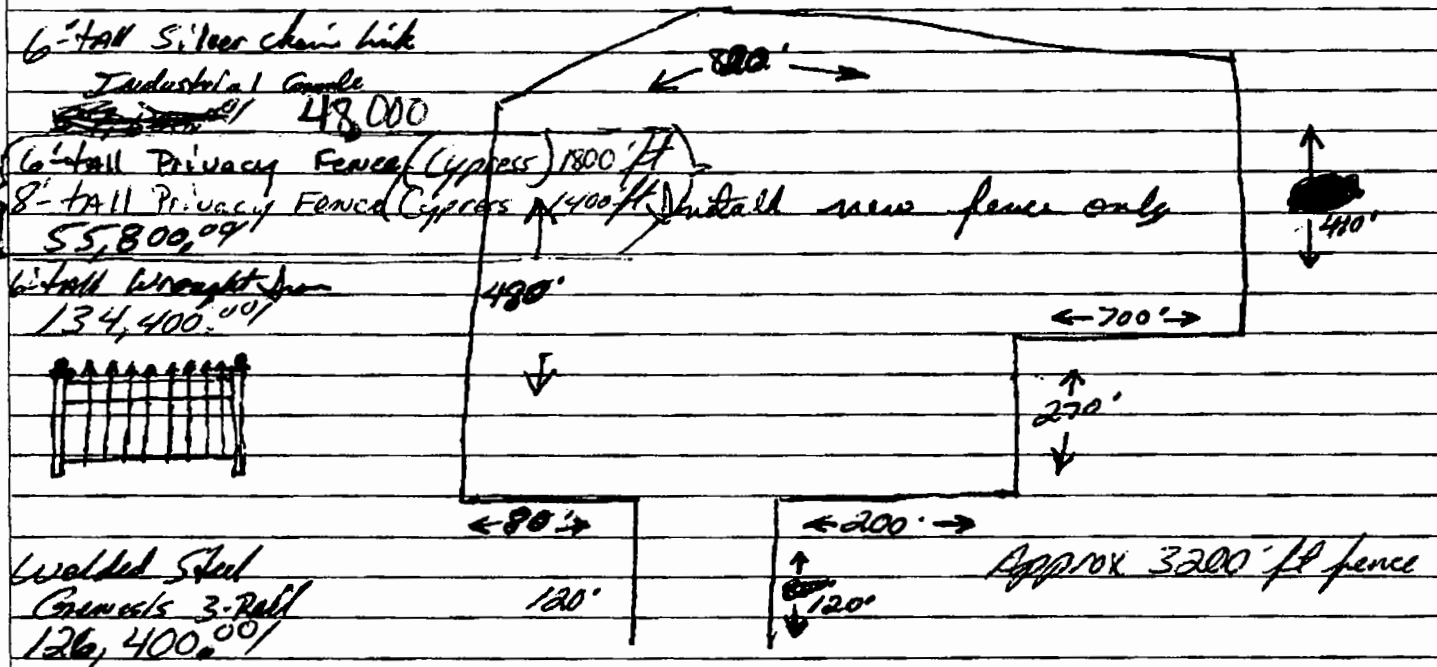 6'-tall Silver chain link
Industrial Grade
48,000
6'-tall Privacy Fence (Cypress) 1800'/ft
8'-tall Privacy Fence (Cypress) 1400'/ft install new fence only
55,800.00/
6'-tall Wrought Iron
134,400.00/
Welded Steel
Genesis 3-Rail
126,400.00/
480'
700'
270'
80'
200'
120'
120'
Approx 3200' ft fence